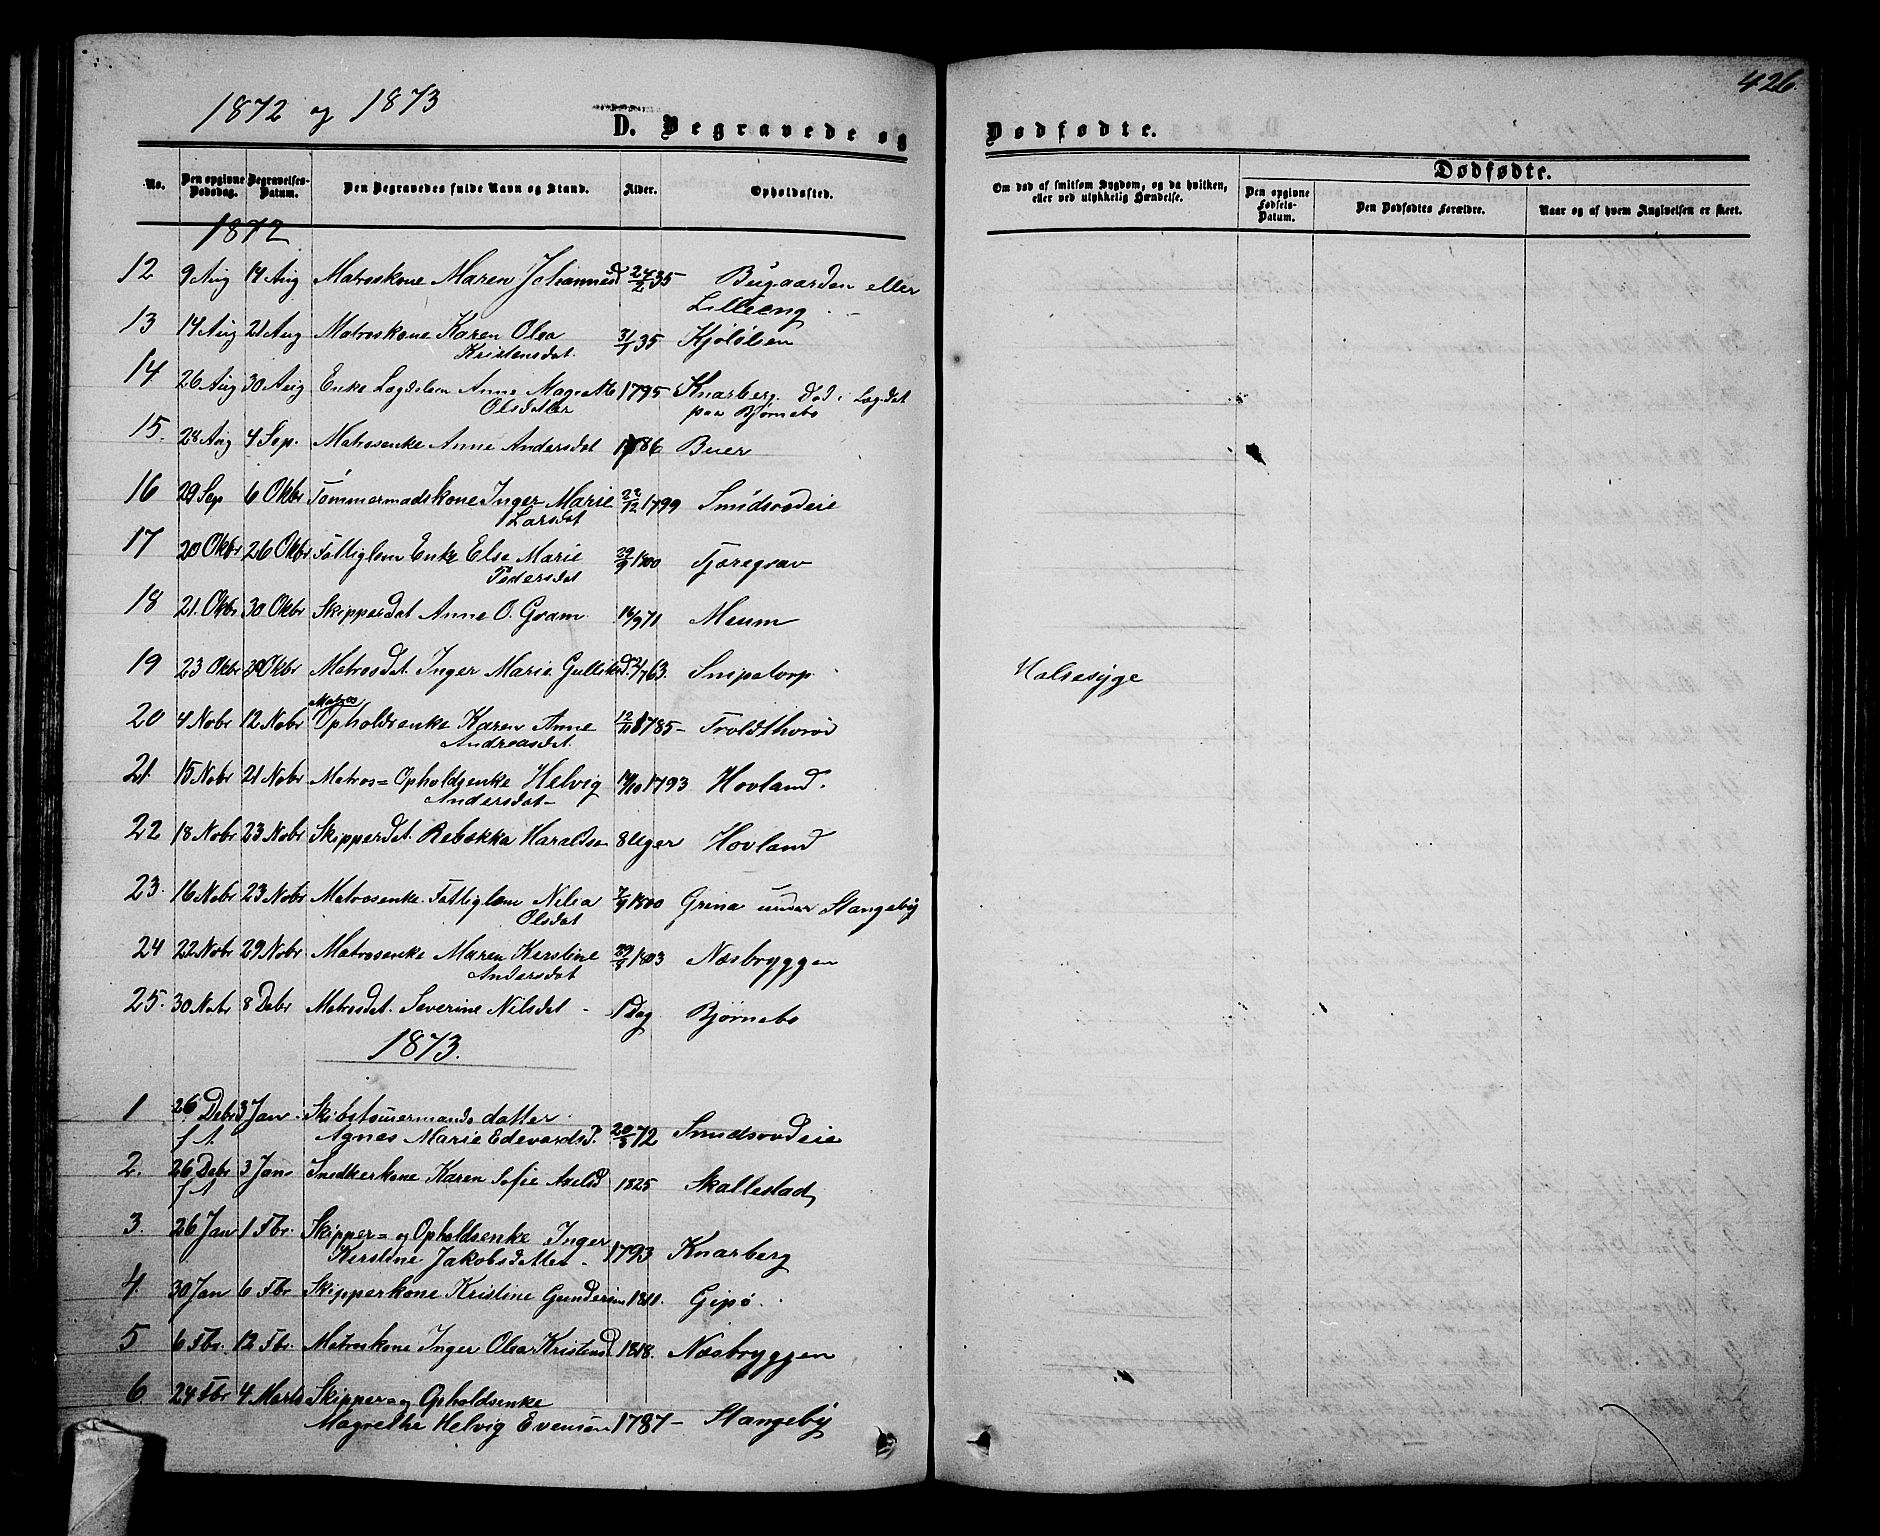 1872 og 1873
D. Begravede og
No. Den opgivne Dødsdag. Begravelses-Datum. Den Begravedes fulde Navn og Stand. Alder. Opholdssted.
1872
12 9 Aug 14 Aug Matroskone Maren Johannesd 24/2 35 - Bugaarden eller
Lilleeng
13 14 Aug 21 Aug Matroskone Karen Olea 31/7 35 Kjølølsen
Kristensdat.
14 26 Aug 30 Aug Enke Lægdslem Anne Magrethe 1795 Knarberg. Død i Lægdet
Olsdatter paa Bjørnebo
15. 28 Aug 4 Sep. Matrosenke Anne Andersdat 1786 Buer
16 29 Sep 6 Okbr Tømmermadskone Inger Marie 22/12 1799 Smidsrødeie
Larsdat
17 20 Okbr 26 Okbr Fattiglem Enke Else Marie 29/9 1800 Tjæregrav
Pedersdat
18 21. Okbr 30 Okbr Skipperdat Anne O. Gram 16/9 71 Meum
19 23 Okbr 30 Okbr Matrosdat. Inger Marie Gulliksd 2/7 63. Snipetorp
20 4 Nobr 12 Nobr Matros Opholdsenke Karen Anne 12/11 1785 - Troldthvrød
Andreasdat.
21. 15 Nobr 21 Nobr Matros= Opholdsenke Helvig 14/10 1793 Hovland.
Andersdat -
22 18 Nobr 23 Nobr Skipperdat. Rebekka Haraldsen 8 Uger Hovland
23. 16 Nobr 23 Nobr Matrosenke. Fattiglem Nilia 7/9 1800 Grina under Stangeby
Olsdat
24 22 Nobr 29 Nobr Matrosenke Maren Kerstine 1803 Næsbryggen
Andersdat
25. 30 Nobr 8 Debr Matrosdat. Severine Nilsdat - 1 Dag Bjørnebo
1873.
1 26 Debr 3 Jan Skibstømermands datter
f A Agnes Marie Edevardsd. 20/3 72 Smidsrødeie
2. 26 Debr 3 Jan Snedkerkone Karen Sofie Axelsd 1825 Skallestad
f A
3. 26 Jan 1 Fbr. Skipper= og Opholdsenke Inger
Kerstine Jakobsdatter - 1793 Knarberg
4. 30 Jan 6 Fbr Skipperkone Kristine Gundersen 1811. Gipø.
5 6 Fbr. 12 Fbr. Matroskone Inger Olea Kristensd 1818. Næsbryggen
6. 24 Fbr 4 Marts Skipper= og Opholdsenke
Magrethe Helvig Evensen 1787 - Stangeby
426.
Dødfødte.
Om død af smitsom Sygdom, og da hvilken, eller ved ulykkelig Hændelse.
Dødfødte.
Den opgivne Fødsels-Datum. Den Dødfødtes Forældre. Naar og af hvem Angivelsen er skeet.
Halsesyge